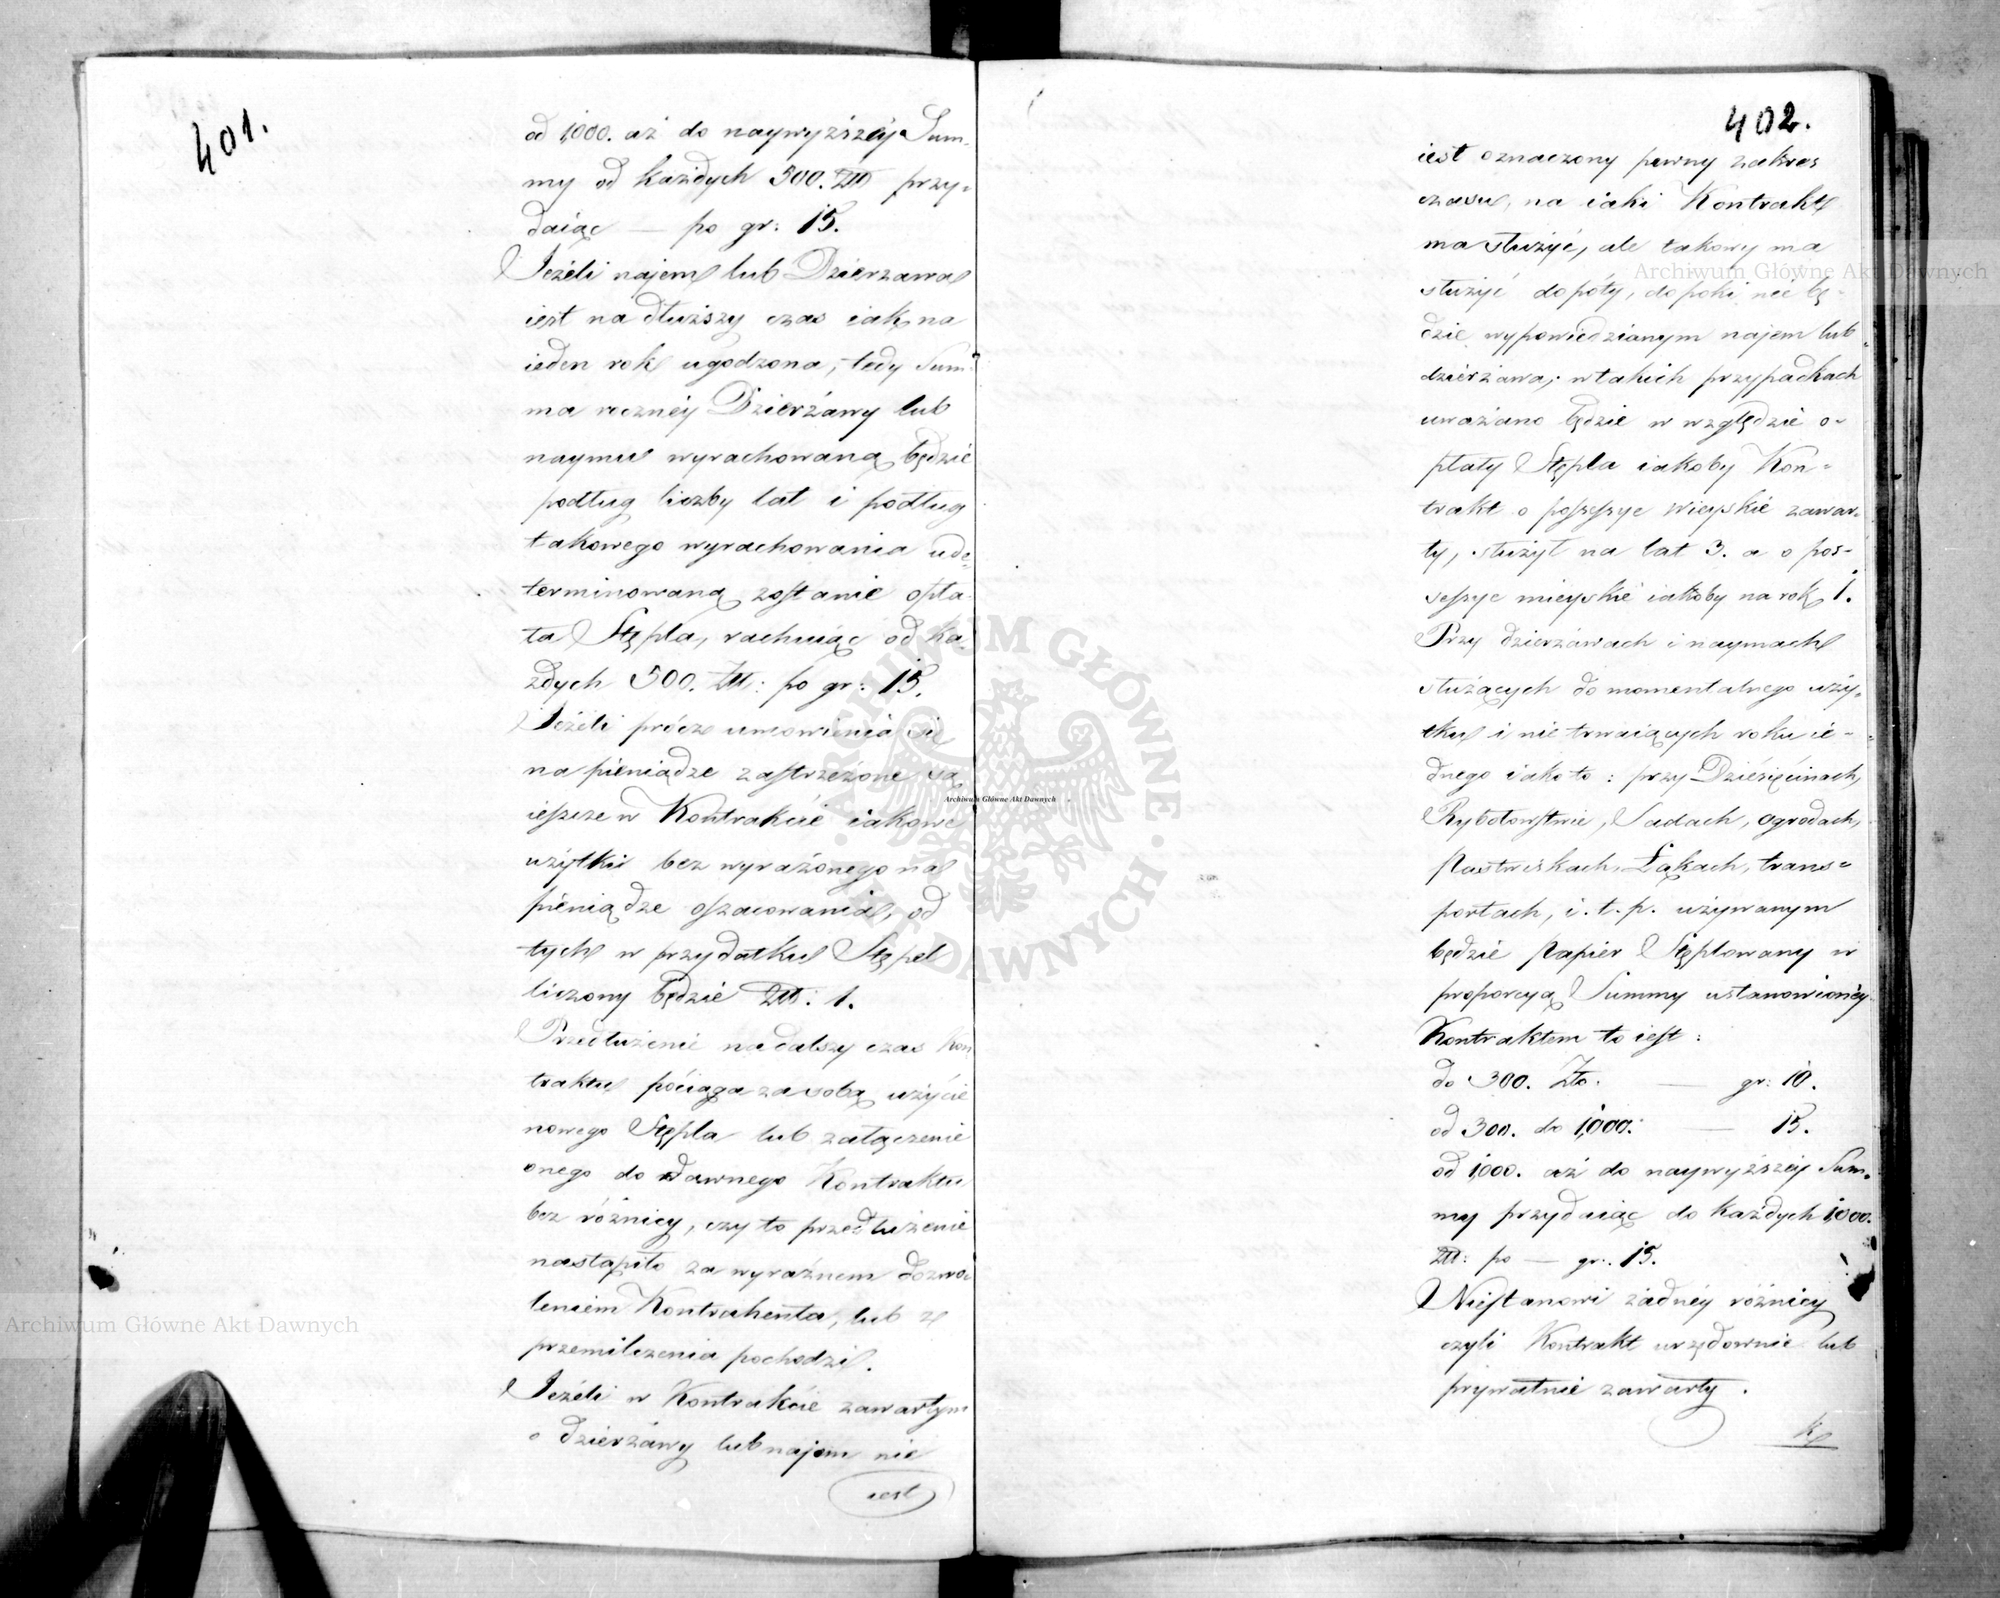 401.
od 1,000. aż do naywyższéy Sum-
my od każdych 500. Złł przy-
daiąc — po gr: 15.
Jeżeli najem lub Dzierzawa
iest na dłuższy czas iak na
ieden rok ugodzona, tedy Sum-
ma rocznéy Dzierżawy lub
naymu wyrachowaną będzie
podług liczby lat i podług
takowego wyrachowania ude-
terminowaną zostanie opła-
ta Stępla, rachuiąc od ka-
żdych 500. Złł: po gr: 15.
Jeżeli prócz umowienia się
na pieniądze zastrzeżone są
ieszcze w Kontrakcie iakowe
użytki bez wyrażonego na
pieniądze oszacowania, od
tych w przydatku Stępel
liczony będzie Złł: 1.
Przedłużenie na dalszy czas Kon
traktu pociąga za sobą użycie
nowego Stępla lub załączenie
onego do dawnego Kontraktu
bez różnicy, czy to przedłużenie
nastąpiło za wyraźnem dozwo-
leniem Kontrahenta, lub z
przemilczenia pochodzi.
Jeżeli w Kontrakcie zawartym
o dzierżawy lub najem nie
iest
402.
iest oznaczony pewny zakres
czasu, na iaki Kontrakt
ma służyć, ale takowy ma
służyć dopóty, dopoki nie bę-
dzie wypowiedzianym najem lub
dzierżawa; w takich przypadkach
uważano będzie w względzie o-
płaty Stępla iakoby Kon-
trakt o possessye wieyskie zawar-
ty, służył na lat 3. a o pos-
sessye mieyskie iakoby na rok 1.
Przy dzierżawach i naymach
służących do momentalnego uży-
tku i nie trwaiących roku ie-
dnego iako to: przy Dziesięcinach,
Rybołowstwie, Sadach, ogrodach,
Pastwiskach, Łąkach, trans-
portach, i. t. p. używanym
będzie Papier Stęplowany w
proporcyą Summy ustanowionéy
Kontraktem to iest:
do 300. Złło. — gr: 10.
od 300. do 1,000: — 15.
od 1,000. aż do naywyższéy Sum-
my przydaiąc do każdych 1,000.
Złł: po — gr: 15.
Niestanowi żadnéy różnicy
czyli Kontrakt urzędownie lub
prywatnie zawarty.
Archiwum Główne Akt Dawnych
Archiwum Główne Akt Dawnych
Archiwum Główne Akt Dawnych